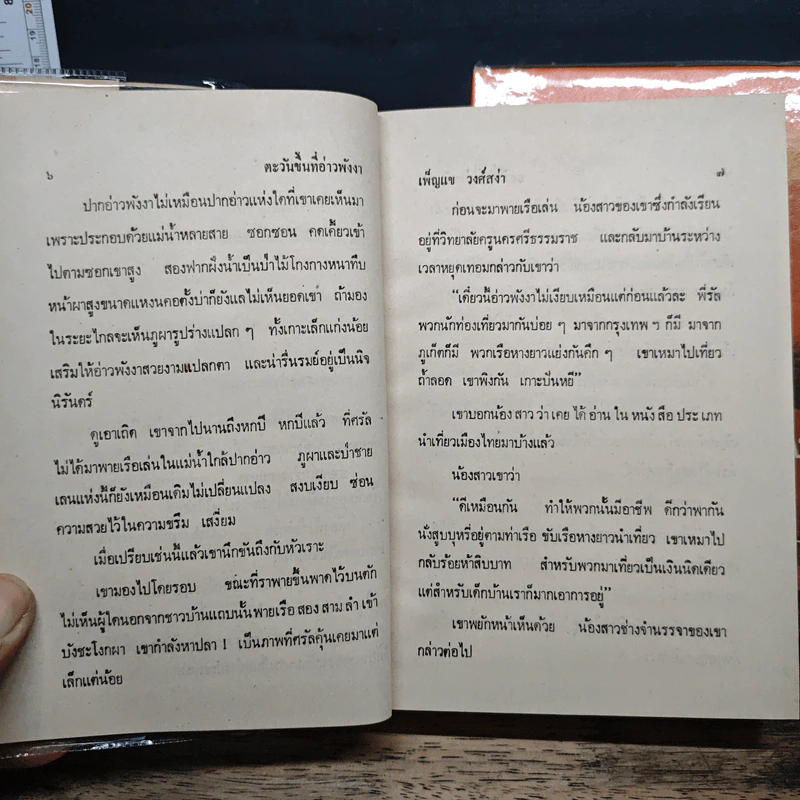 ๖ ตะวันขึ้นที่อ่าวพังงา
ปากอ่าวพังงาไม่เหมือนปากอ่าวแห่งใดที่เขาเคยเห็นมา
เพราะประกอบด้วยแม่น้ำหลายสาย ซอกซอน คดเคี้ยวเข้า
ไปตามซอกเขาสูง สองฟากฝั่งน้ำเป็นป่าไม้โกงกางหนาทึบ
หน้าผาสูงขนาดแหงนคอตั้งบ่าก็ยังแลไม่เห็นยอดเขา ถ้ามอง
ในระยะไกลจะเห็นภูผารูปร่างแปลก ๆ ทั้งเกาะเล็กแก่งน้อย
เสริมให้อ่าวพังงาสวยงามแปลกตา และน่ารื่นรมย์อยู่เป็นนิจ
นิรันดร์
ดูเอาเถิด เขาจากไปนานถึงหกปี หกปีแล้ว ที่ศรัล
ไม่ได้มาพายเรือเล่นในแม่น้ำใกล้ปากอ่าว ภูผาและป่าชาย
เลนแห่งนี้ก็ยังเหมือนเดิมไม่เปลี่ยนแปลง สงบเงียบ ซ่อน
ความสวยไว้ในความขรึม เสงี่ยม
เมื่อเปรียบเช่นนี้แล้วเขานึกขันถึงกับหัวเราะ
เขามองไปโดยรอบ ขณะที่ราพายขึ้นพาดไว้บนตัก
ไม่เห็นผู้ใดนอกจากชาวบ้านแถบนั้นพายเรือ สอง สาม ลำ เข้า
บังชะโงกผา เขากำลังหาปลา ! เป็นภาพที่ศรัลคุ้นเคยมาแต่
เล็กแต่น้อย
เพ็ญแข วงศ์สง่า ๗
ก่อนจะมาพายเรือเล่น น้องสาวของเขาซึ่งกำลังเรียน
อยู่ที่วิทยาลัยครูนครศรีธรรมราช และกลับมาบ้านระหว่าง
เวลาหยุดเทอมกล่าวกับเขาว่า
“เดี๋ยวนี้อ่าวพังงาไม่เงียบเหมือนแต่ก่อนแล้วละ พี่รัล
พวกนักท่องเที่ยวมากันบ่อย ๆ มาจากกรุงเทพ ฯ ก็มี มาจาก
ภูเก็ตก็มี พวกเรือหางยาวแย่งกันคึก ๆ เขาเหมาไปเที่ยว
ถ้ำลอด เขาพิงกัน เกาะปันหยี”
เขาบอกน้อง สาว ว่า เคย ได้ อ่าน ใน หนัง สือ ประ เภท
นำเที่ยวเมืองไทยมาบ้างแล้ว
น้องสาวเขาว่า
“ดีเหมือนกัน ทำให้พวกนั้นมีอาชีพ ดีกว่าพากัน
นั่งสูบบุหรี่อยู่ตามท่าเรือ ขับเรือหางยาวนำเที่ยว เขาเหมาไป
กลับร้อยห้าสิบบาท สำหรับพวกมาเที่ยวเป็นเงินนิดเดียว
แต่สำหรับเด็กบ้านเราก็มากเอาการอยู่”
เขาพยักหน้าเห็นด้วย น้องสาวช่างจำนรรจาของเขา
กล่าวต่อไป